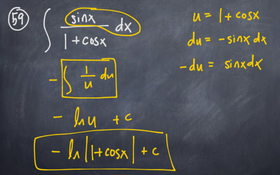 59 ∫ sinx / 1+cosx dx
u = 1+cosx
du = -sinx dx
-du = sinx dx
- ∫ 1/u du
- ln u + c
- ln |1+cosx| + c